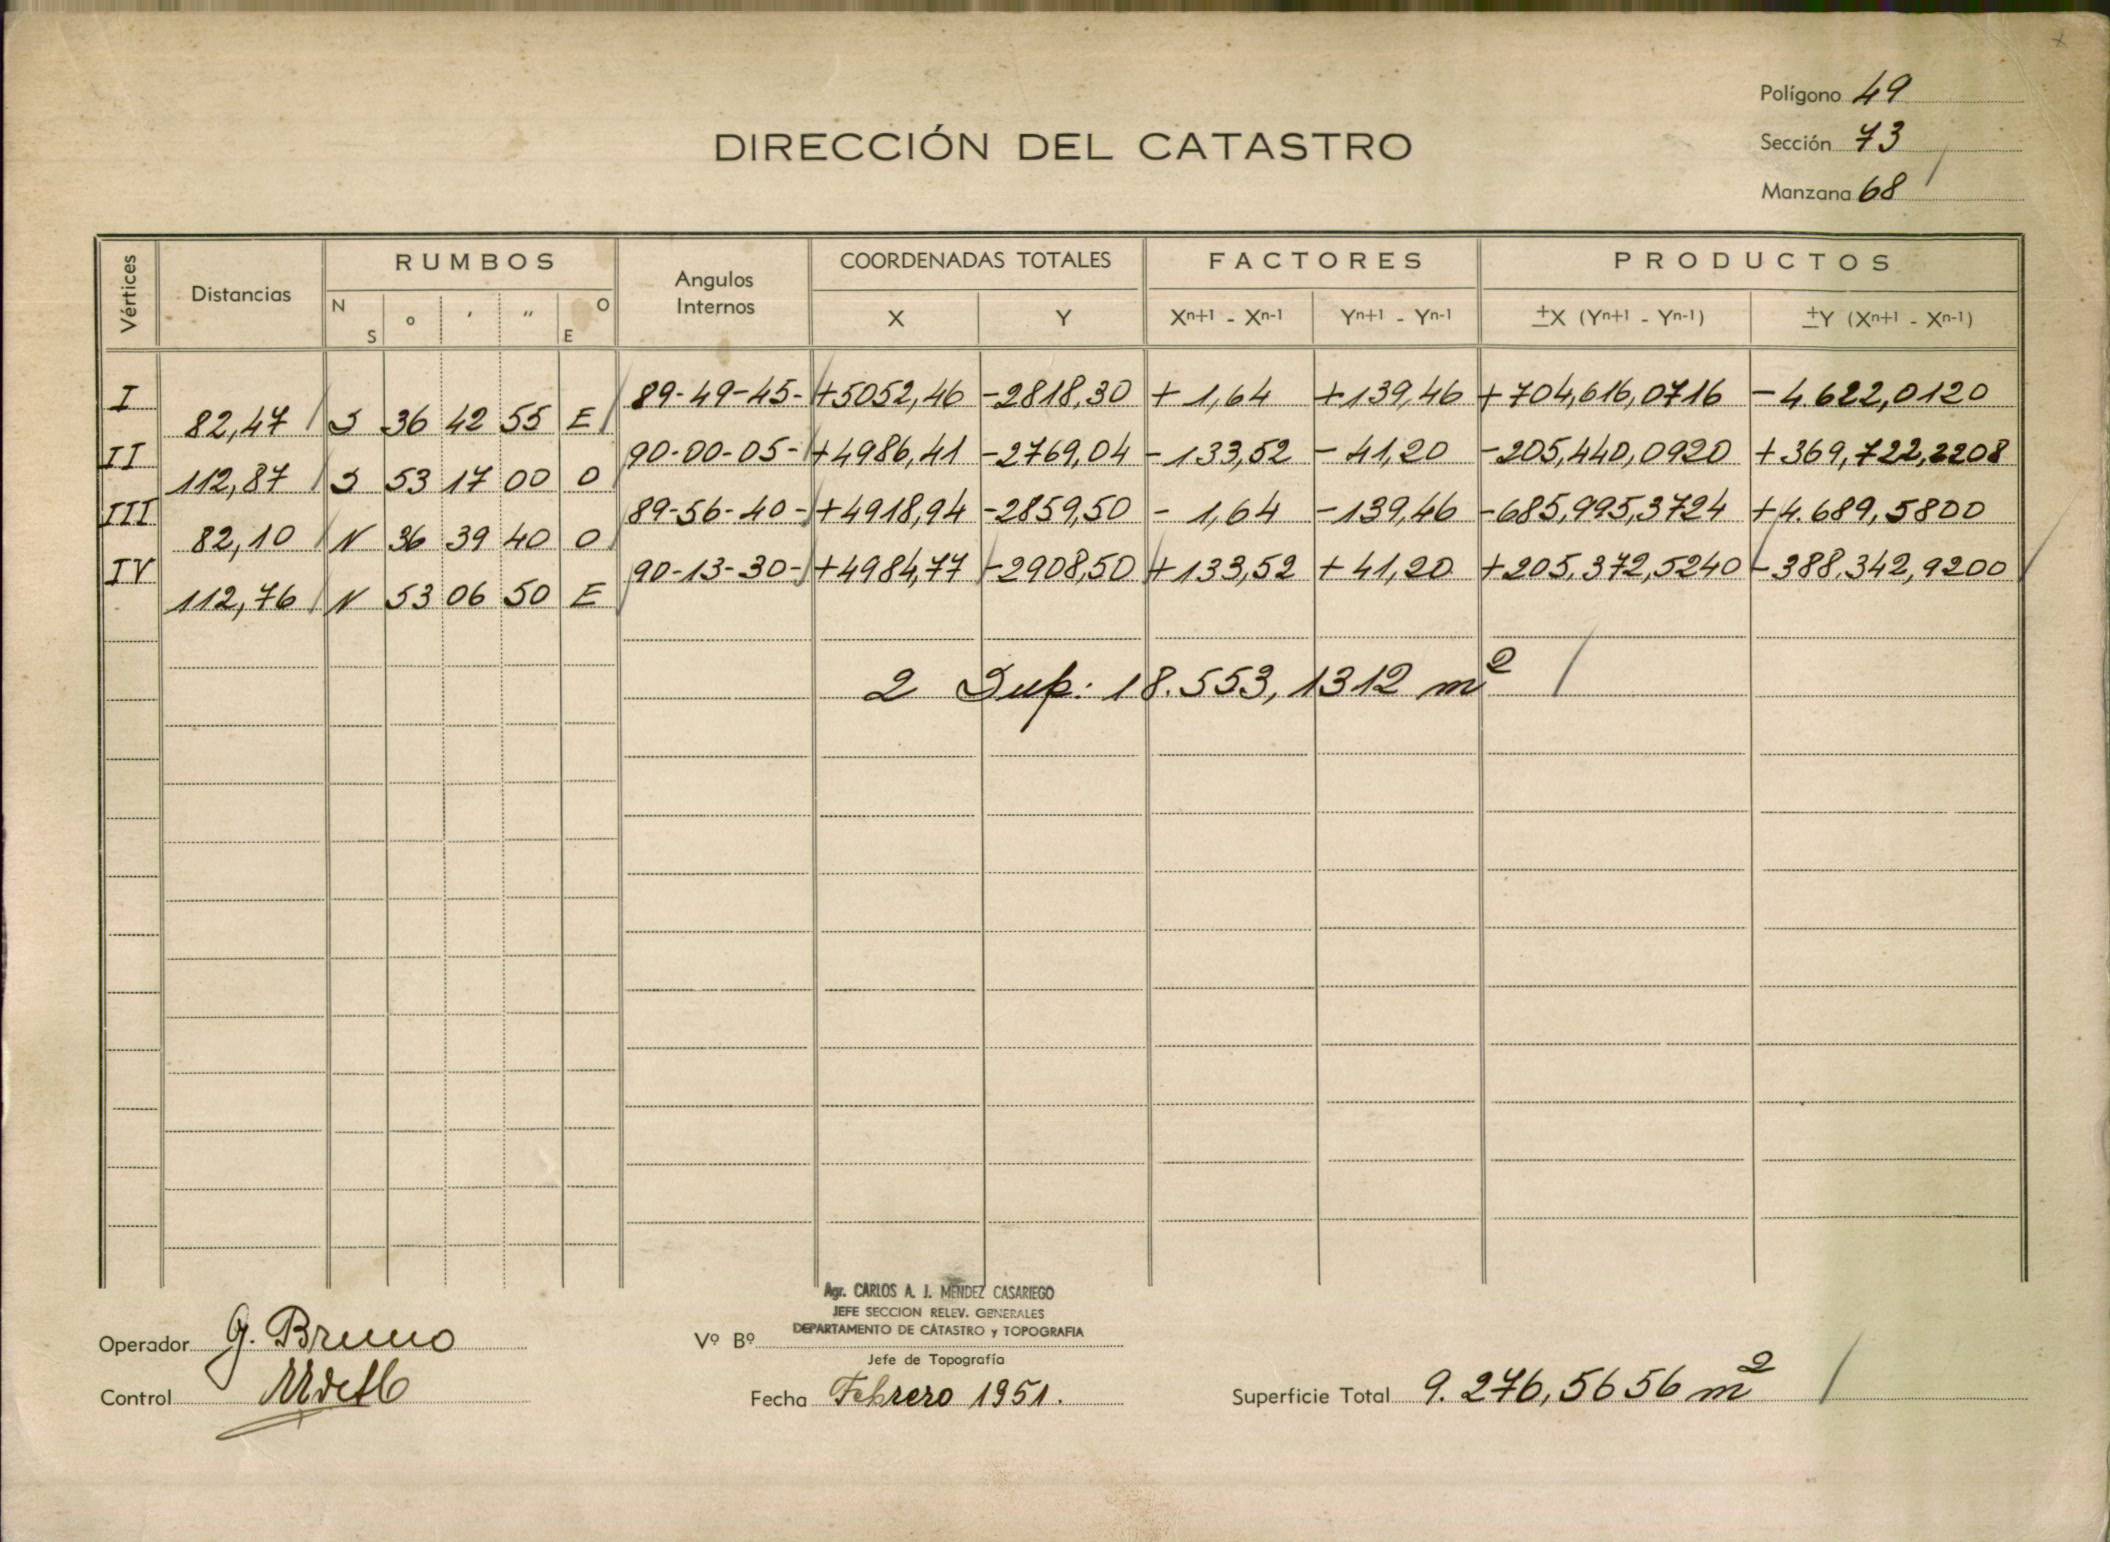 Polígono 49
DIRECCIÓN DEL CATASTRO
Sección 73
Manzana 68
Vértices Distancias RUMBOS Angulos Internos COORDENADAS TOTALES FACTORES PRODUCTOS
N S ° ' " E O X Y Xn+1 - Xn-1 Yn+1 - Yn-1 ±X (Yn+1 - Yn-1) ±Y (Xn+1 - Xn-1)
I 89-49-45- +5052,46 -2818,30 + 1,64 +139,46 +704,616,0716 -4.622,0120
82,47 S 36 42 55 E
II 90-00-05- +4986,41 -2769,04 -133,52 -41,20 -205,440,0920 +369,722,2208
112,87 S 53 17 00 O
III 89-56-40- +4918,94 -2859,50 - 1,64 -139,46 -685,995,3724 +4.689,5800
82,10 N 36 39 40 O
IV 90-13-30- +4984,77 -2908,50 +133,52 +41,20 +205,372,5240 -388.342,9200
112,76 N 53 06 50 E
2 Sup: 18.553,1312 m²
Agr. CARLOS A. J. MÉNDEZ CASARIEGO
JEFE SECCION RELEV. GENERALES
DEPARTAMENTO DE CATASTRO y TOPOGRAFIA
Operador G. Bruno Vº Bº
Jefe de Topografía
Control Fecha Febrero 1951. Superficie Total 9.276,5656 m²